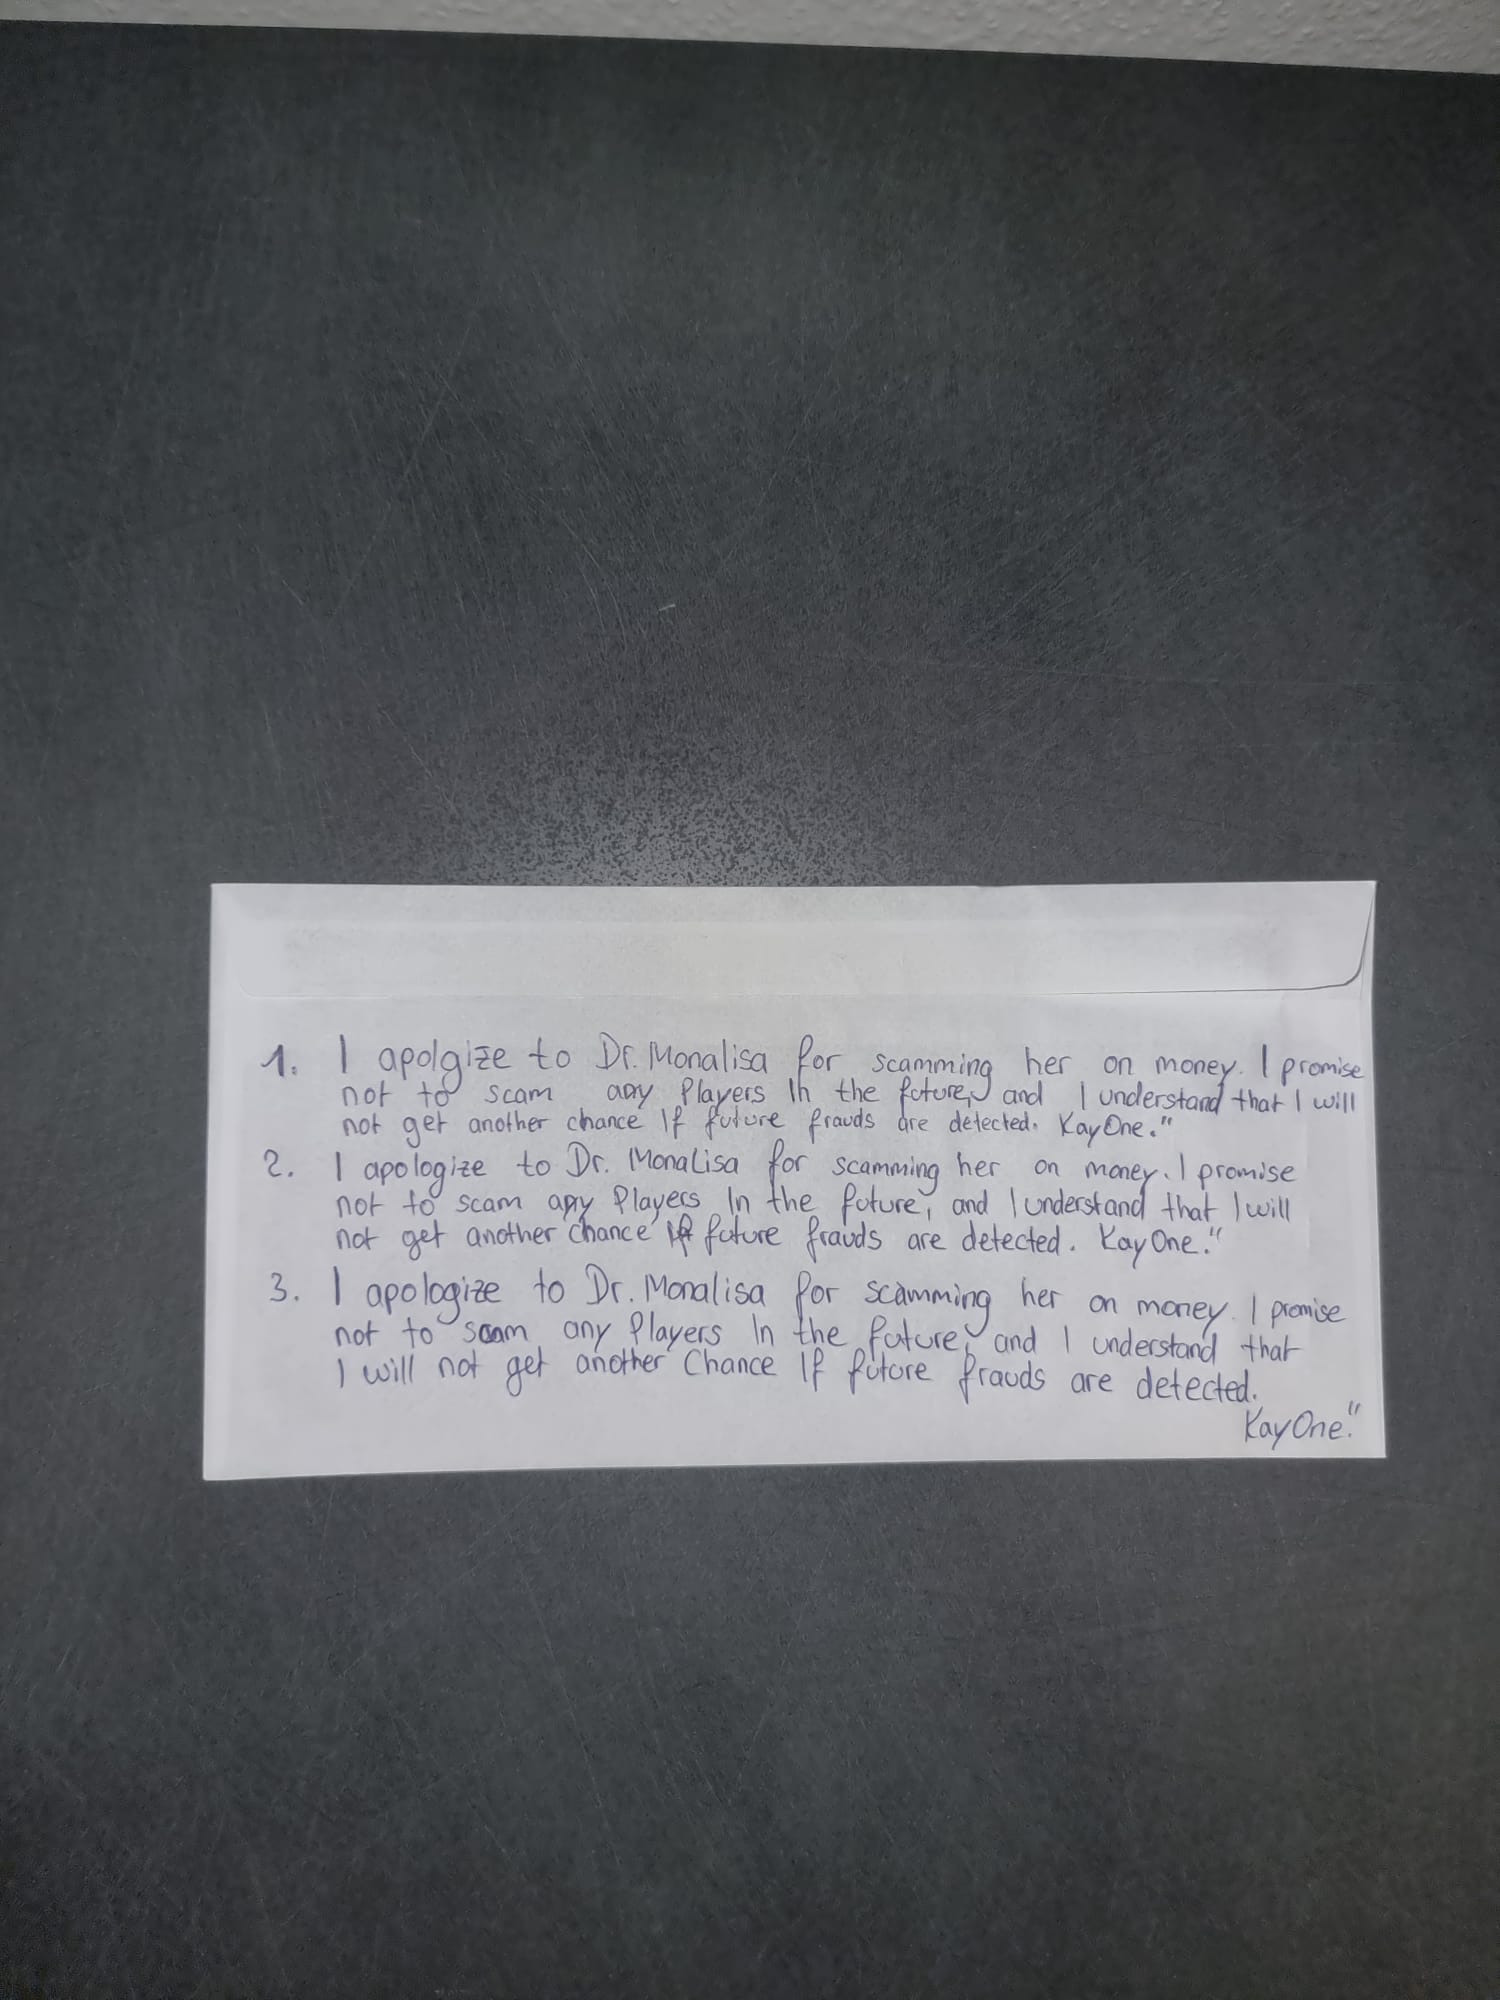 1. I apolgize to Dr. Monalisa for scamming her on money. I promise
not to scam any Players In the future, and I understand that I will
not get another chance If future frauds are detected. KayOne."
2. I apologize to Dr. MonaLisa for scamming her on money. I promise
not to scam any Players In the future, and I understand that I will
not get another chance if future frauds are detected. KayOne."
3. I apologize to Dr. Monalisa for scamming her on money. I promise
not to scam any Players In the future, and I understand that
I will not get another Chance If future frauds are detected.
KayOne."